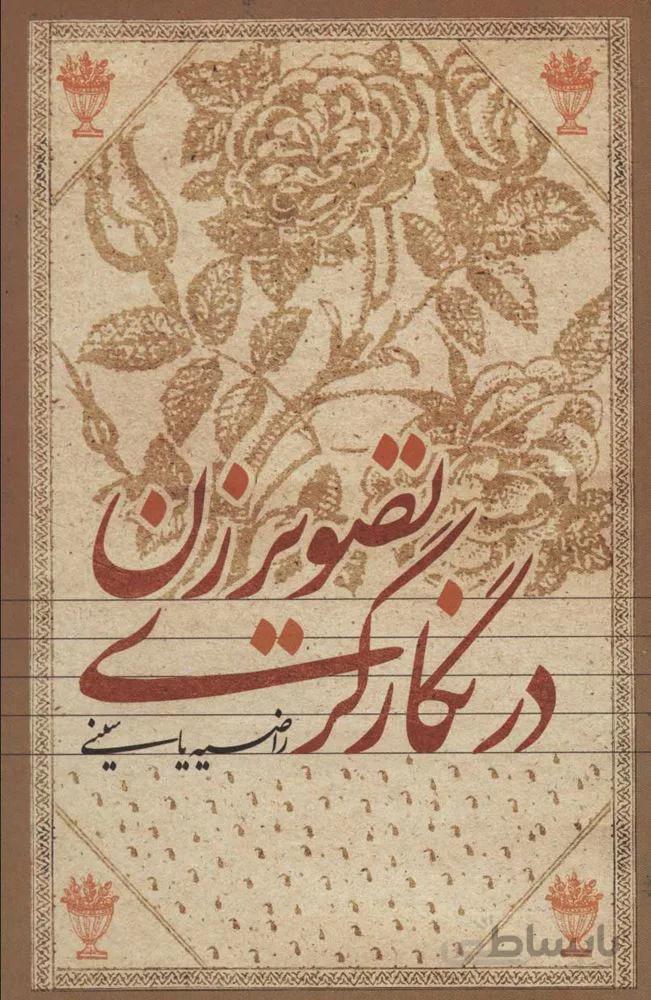 تصویر زن
در نگارگری
راضیه یاسینی
باساط